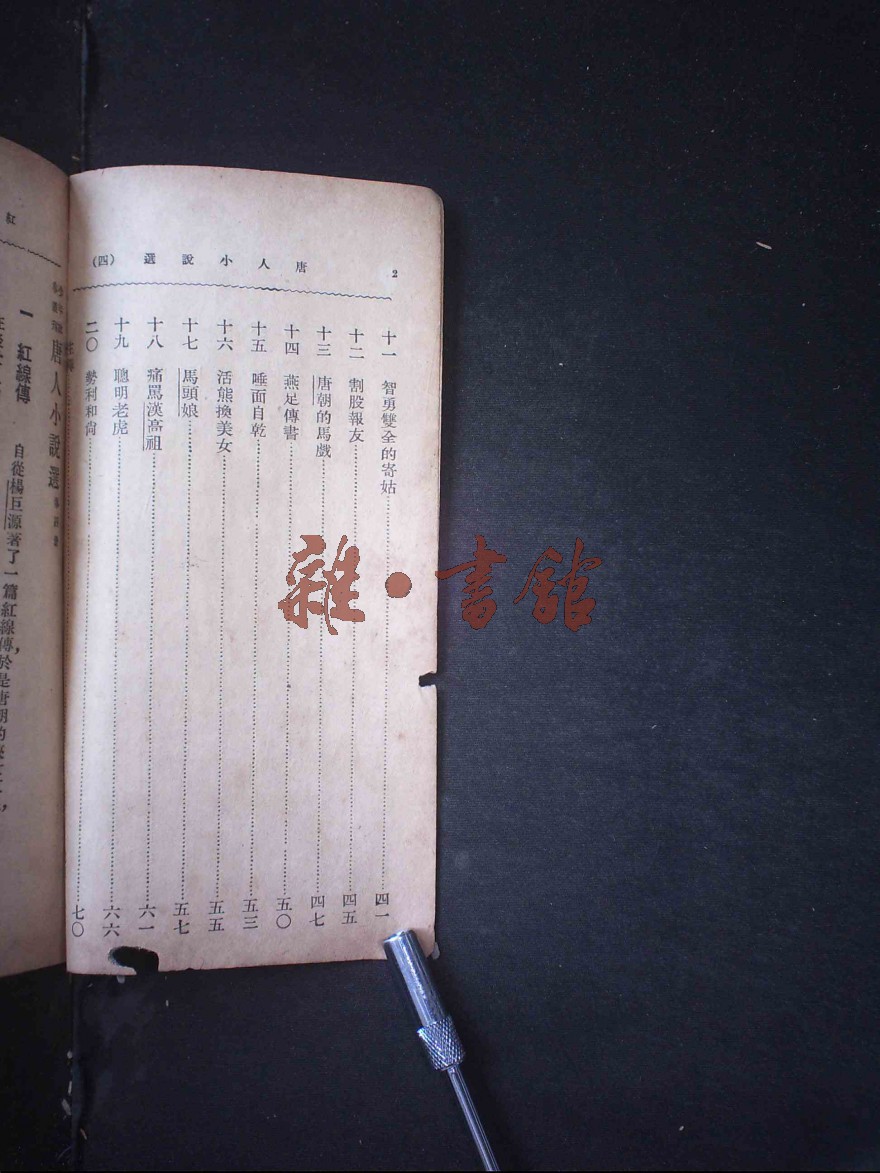 2
唐人小說選 (四)
十一 智勇雙全的寄姑 四一
十二 割股報友 四五
十三 唐朝的馬戲 四七
十四 燕足傳書 五〇
十五 唾面自乾 五三
十六 活熊換美女 五五
十七 馬頭娘 五七
十八 痛罵漢高祖 六一
十九 聰明老虎 六六
二〇 勢利和尙 七〇
紅
唐人小說選
一 紅線傳
自從楊巨源著了一篇紅線傳，於是唐朝的
雜·書館